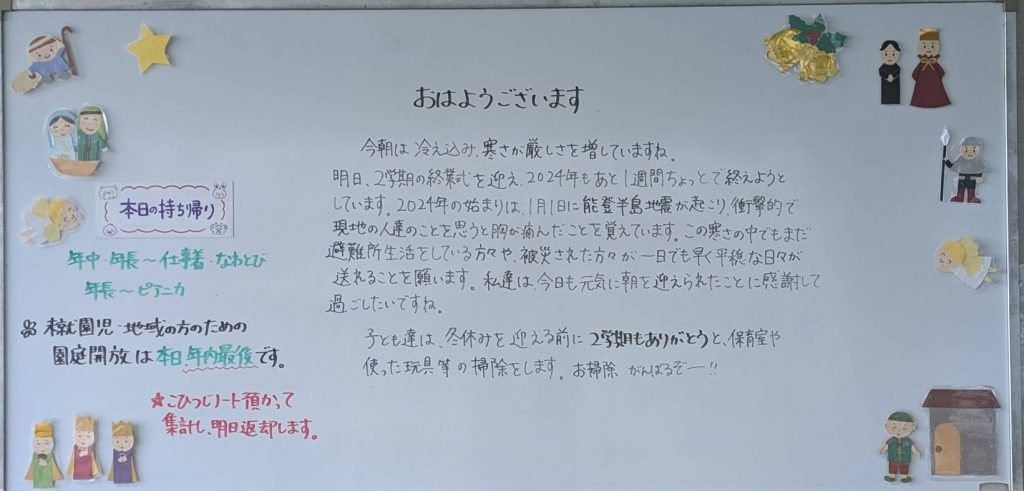 おはようございます
今朝は冷え込み、寒さが厳しさを増していますね。
明日、2学期の終業式を迎え、2024年もあと1週間ちょっとで終えようと
しています。2024年の始まりは、1月1日に能登半島地震が起こり、衝撃的で
現地の人達のことを思うと胸が痛んだことを覚えています。この寒さの中でもまだ
避難所生活をしている方々や、被災された方々が一日でも早く平穏な日々が
送れることを願います。私達は、今日も元気に朝を迎えられたことに感謝して
過ごしたいですね。
子ども達は、冬休みを迎える前に2学期もありがとうと、保育室や
使った玩具等の掃除をします。お掃除がんばるぞー!!
本日の持ち帰り
年中・年長〜仕事着・なわとび
年長〜ピアニカ
未就園児・地域の方のための
園庭開放は本日、年内最後です。
★こひつじノート預かって
集計し、明日返却します。